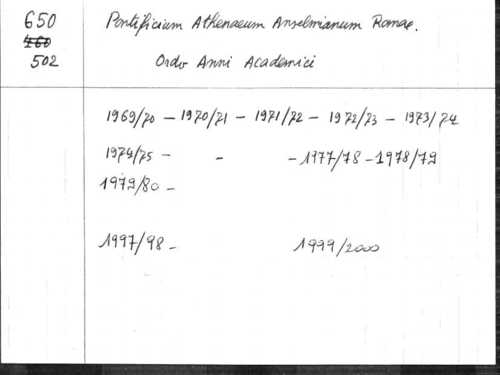 650
260
502
Pontificium Athenaeum Anselmianum Romae.
Ordo Anni Academici
1969/70 - 1970/71 - 1971/72 - 1972/73 - 1973/74
1974/75 - - - 1977/78 - 1978/79
1979/80 -
1997/98 - 1999/2000